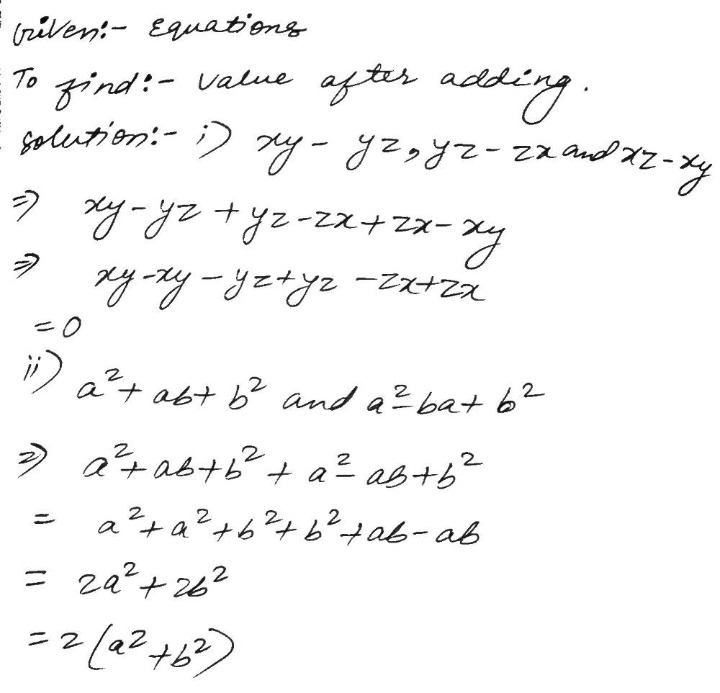 Given:- Equations
To find:- value after adding.
Solution:- i) xy - yz, yz - zx and xz - xy
⇒ xy - yz + yz - zx + zx - xy
⇒ xy - xy - yz + yz - zx + zx
= 0
ii) a² + ab + b² and a² - ba + b²
⇒ a² + ab + b² + a² - ab + b²
= a² + a² + b² + b² + ab - ab
= 2a² + 2b²
= 2(a² + b²)